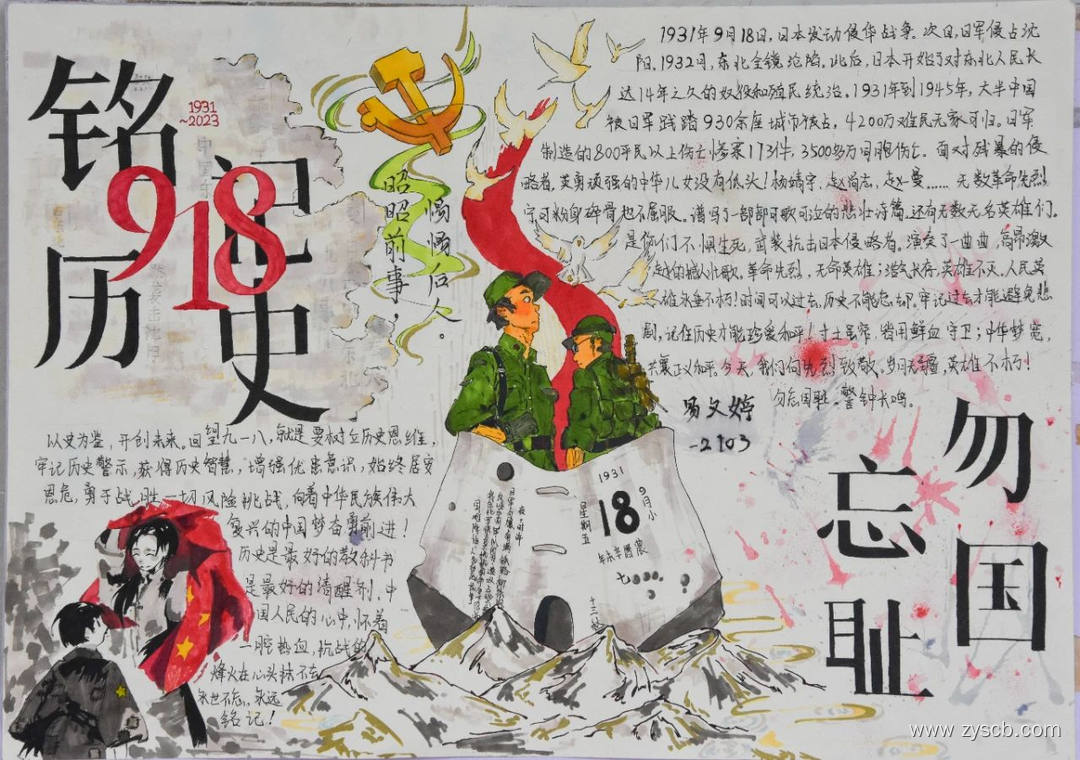 铭记
历史
1931
~2023
918
昭昭前事，
惕惕后人。
1931年9月18日，日本发动侵华战争。次日，日军侵占沈
阳。1932日，东北全境沦陷。此后，日本开始了对东北人民长
达14年之久的奴役和殖民统治。1931年到1945年，大半中国
被日军践踏930余座城市被占，4200万难民无家可归。日军
制造的800平民以上伤亡惨案173件，3500多万同胞伤亡。面对残暴的侵
略者，英勇顽强的中华儿女没有低头！杨靖宇，赵尚志，赵一曼……无数革命先烈
宁可粉身碎骨也不屈服。谱写了一部部可歌可泣的悲壮诗篇。还有无数无名英雄们。
是你们不惧生死，武装抗击日本侵略者。演奏了一曲曲，高昂激
越的雄壮歌。革命先烈，无命英雄；浩气长存，英雄不灭。人民英
雄永垂不朽！时间可以过去，历史不能忘却，牢记过去才能避免悲
剧，记住历史才能珍爱和平！寸土虽窄，皆用鲜血守卫；中华梦宽，
共襄正义和平。今天，我们向先烈致敬，岁月无疆，英雄不朽！
勿忘国耻，警钟长鸣。
易文婷
-2103
以史为鉴，开创未来。回望九一八，就是要树立历史思维，
牢记历史警示，获得历史智慧，增强忧患意识，始终居安
思危，勇于战胜一切风险挑战，向着中华民族伟大
复兴的中国梦奋勇前进！
历史是最好的教科书
是最好的清醒剂，中
国人民的心中，怀着
一腔热血，抗战的
烽火在心头抹不去
永世不忘，永远
铭记！
1931
9月小
18
星期五
农酉年未辛
七
十三
勿忘
国耻
www.zyscb.com